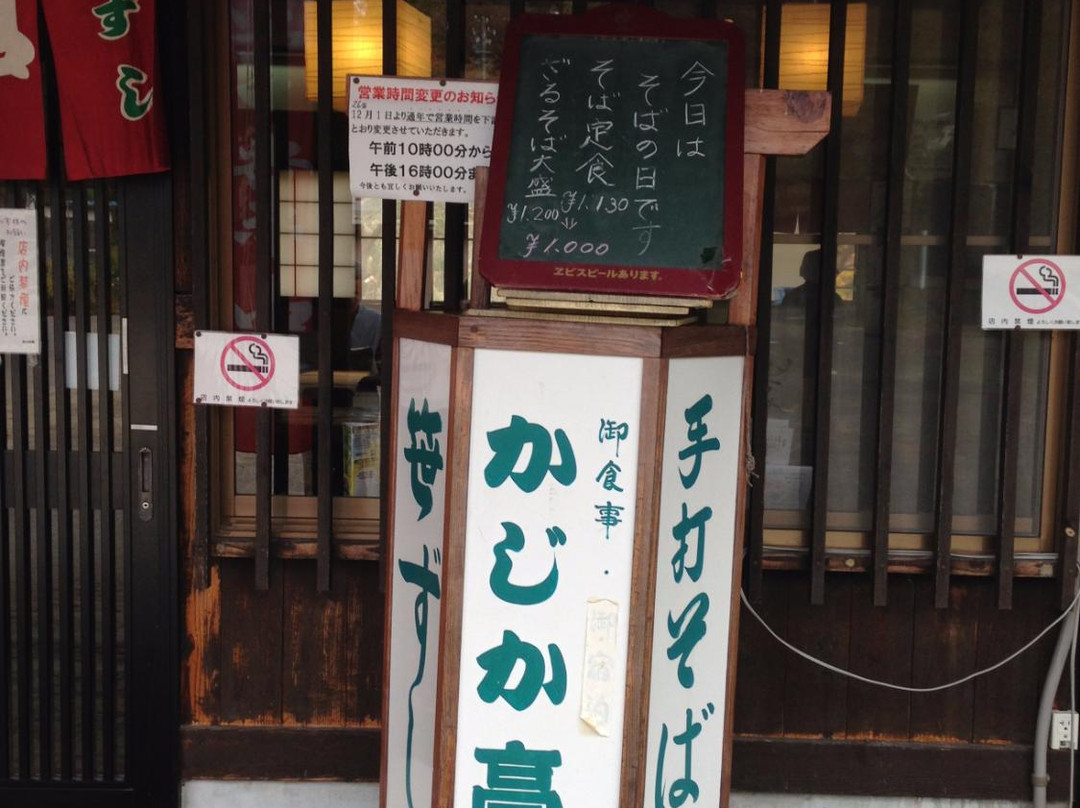 すし
営業時間変更のお知ら
12月1日より通年で営業時間を下記
とおり変更させていただきます。
午前10時00分から
午後16時00分ま
今後とも宜しくお願いいたします。
今日は
そばの日です
そば定食
¥1.130
ざるそば大盛
¥1.200
↓
¥1.000
ヱビスビールあります。
店内禁煙
店内禁煙 よろしくお願い致します
店内禁煙 よろしくお願い致します
手打そば
御食事・
かじか亭
笹ずし